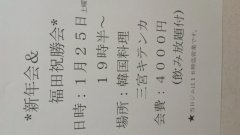 *新年会&
福田祝勝会*
日時：1月25日土曜
19時半～
場所：韓国料理
三宮キテンカ
会費：4000円
(飲み放題付)